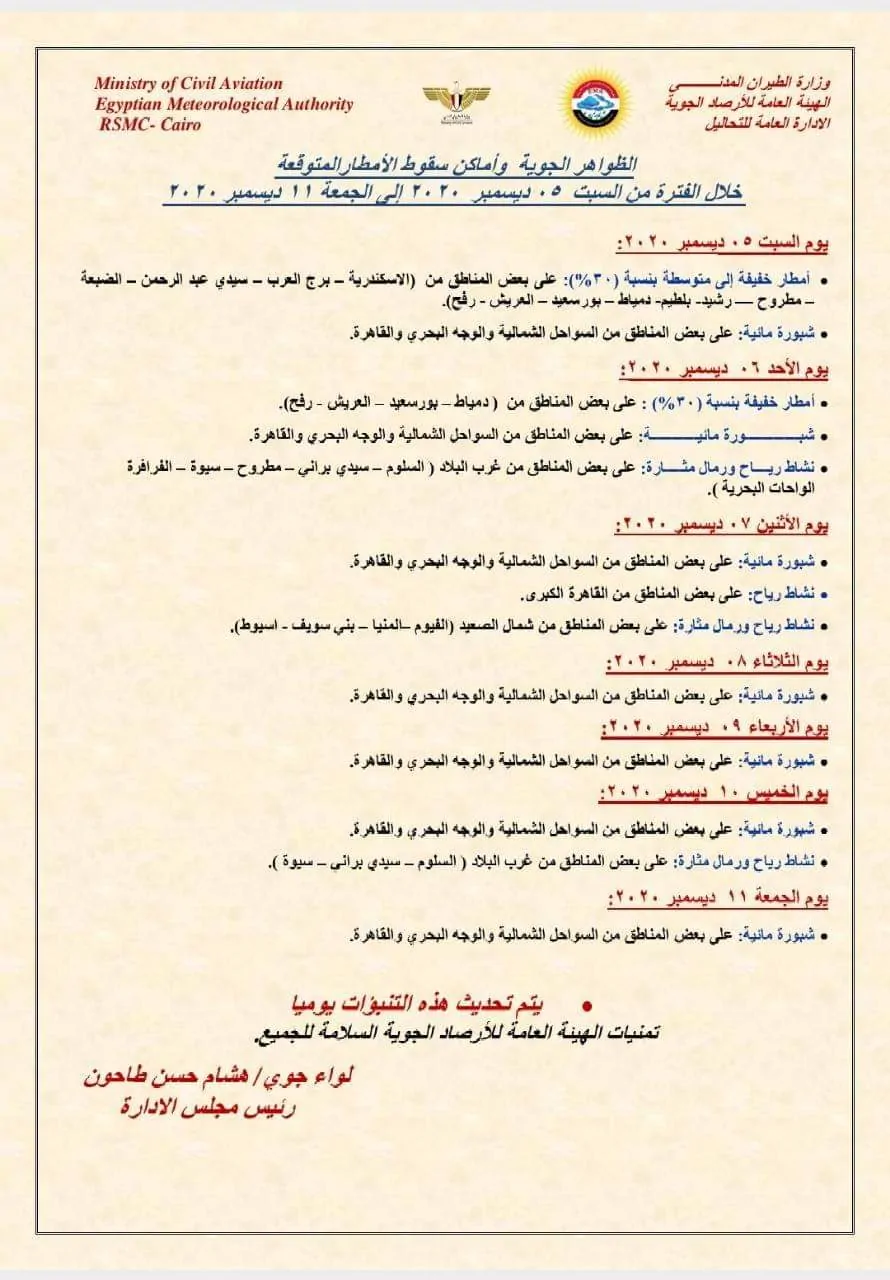 Ministry of Civil Aviation
Egyptian Meteorological Authority
RSMC- Cairo
وزارة الطيران المدنـــــــي
الهيئة العامة للأرصاد الجوية
الادارة العامة للتحاليل
الظواهر الجوية وأماكن سقوط الأمطارالمتوقعة
خلال الفترة من السبت ٠٥ ديسمبر ٢٠٢٠ إلى الجمعة ١١ ديسمبر ٢٠٢٠
يوم السبت ٠٥ ديسمبر ٢٠٢٠:
• أمطار خفيفة إلى متوسطة بنسبة (٣٠%): على بعض المناطق من (الاسكندرية – برج العرب – سيدي عبد الرحمن – الضبعة
– مطروح — رشيد- بلطيم- دمياط – بورسعيد – العريش - رفح).
• شبورة مائية: على بعض المناطق من السواحل الشمالية والوجه البحري والقاهرة.
يوم الأحد ٠٦ ديسمبر ٢٠٢٠:
• أمطار خفيفة بنسبة (٣٠%) : على بعض المناطق من ( دمياط – بورسعيد – العريش - رفح).
• شبـــــــــورة مائيـــــــــة: على بعض المناطق من السواحل الشمالية والوجه البحري والقاهرة.
• نشاط ريـــاح ورمال مثـــارة: على بعض المناطق من غرب البلاد ( السلوم – سيدي براني – مطروح – سيوة – الفرافرة
الواحات البحرية ).
يوم الأثنين ٠٧ ديسمبر ٢٠٢٠:
• شبورة مائية: على بعض المناطق من السواحل الشمالية والوجه البحري والقاهرة.
• نشاط رياح: على بعض المناطق من القاهرة الكبرى.
• نشاط رياح ورمال مثارة: على بعض المناطق من شمال الصعيد (الفيوم –المنيا – بني سويف - اسيوط).
يوم الثلاثاء ٠٨ ديسمبر ٢٠٢٠:
• شبورة مائية: على بعض المناطق من السواحل الشمالية والوجه البحري والقاهرة.
يوم الأربعاء ٠٩ ديسمبر ٢٠٢٠:
• شبورة مائية: على بعض المناطق من السواحل الشمالية والوجه البحري والقاهرة.
يوم الخميس ١٠ ديسمبر ٢٠٢٠:
• شبورة مائية: على بعض المناطق من السواحل الشمالية والوجه البحري والقاهرة.
• نشاط رياح ورمال مثارة: على بعض المناطق من غرب البلاد ( السلوم – سيدي براني – سيوة ).
يوم الجمعة ١١ ديسمبر ٢٠٢٠:
• شبورة مائية: على بعض المناطق من السواحل الشمالية والوجه البحري والقاهرة.
• يتم تحديث هذه التنبؤات يوميا
تمنيات الهيئة العامة للأرصاد الجوية السلامة للجميع.
لواء جوي/ هشام حسن طاحون
رئيس مجلس الادارة